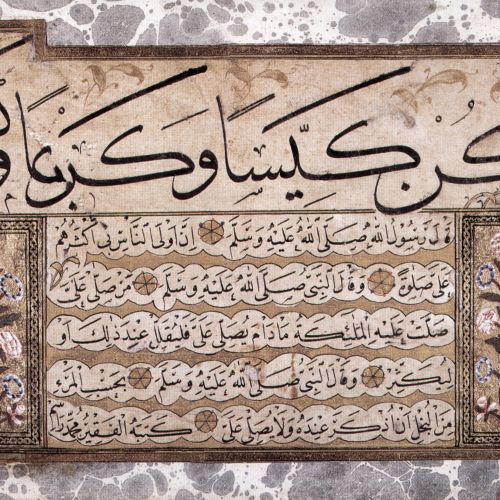 كن كيسا وكريما و
قال رسول الله صلى الله عليه وسلم إن أولى الناس بي أكثرهم
علي صلوة وقال النبي صلى الله عليه وسلم من صلى علي
صلت عليه الملئكة ما دام يصلي علي فليقلل عند ذلك او
ليكثر وقال النبي صلى الله عليه وسلم بحسب المرء
من البخل ان اذكر عنده ولا يصلي علي كتبه الفقير محمد راسم